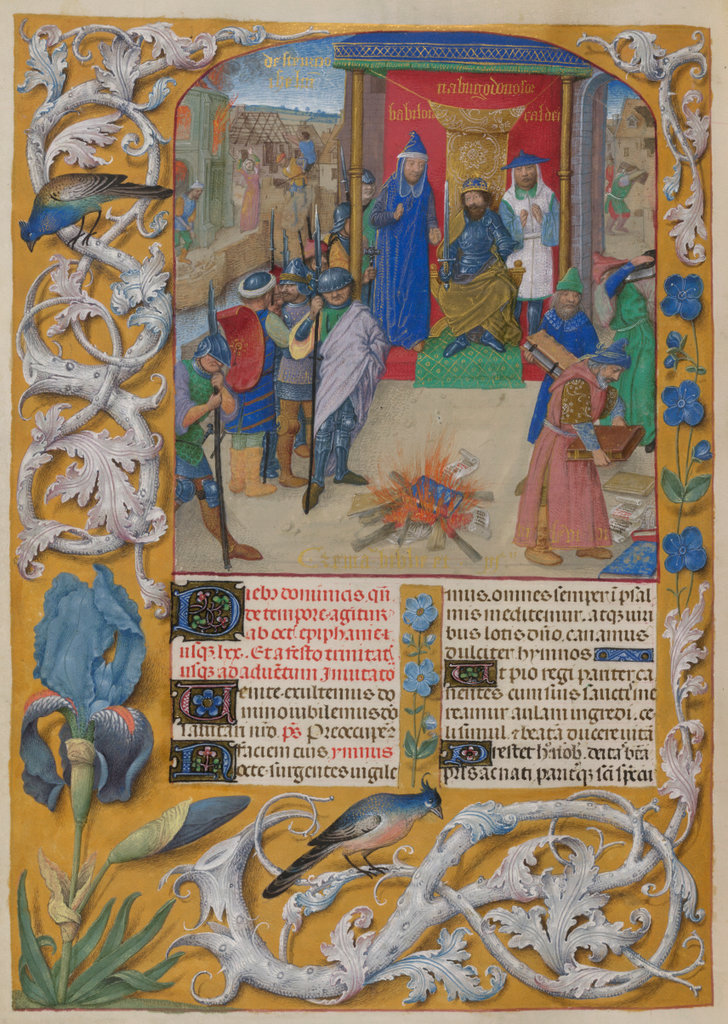 nabugodonosor
babiloni caldei
Diebꝫ dominicis. qn̄
de tempore agitur
ab oct. epiphanie.
usqꝫ lxx. Et a festo trinitatꝭ
usqꝫ ad aduentum Inuitato
Uenite exultemus do
mino iubilemus deo
salutari nr̄o. ps̄ Preoccupe⁊
faciem eius. ymnus
Nocte surgentes uigile
mus. omnes semper ī psal
mis meditemur. atqꝫ uiri
bus totis dn̄o. canamus
dulciter hymnos
Ut pio regi pariter ca
nentes cum suis sanctis me
reamur aulam ingredi. ce
li simul ⁊ beatā ducere uitā
Prestet h' nob̄. deitas b̄ta
pr̄is ac nati pariterqꝫ sc̄i sp̄c̄ai